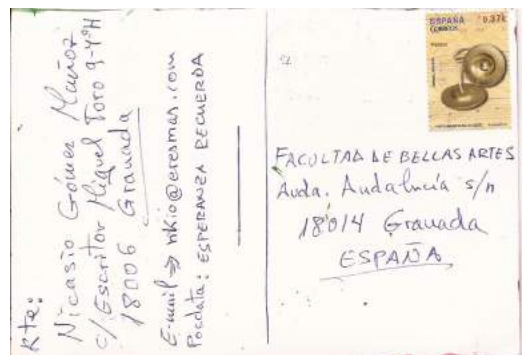 Rte:
Nicasio Gómez Muñoz
c/ Escritor Miguel Toro 9-4ºH
18006 Granada
E-mail → nkio@eresmas.com
Posdata: ESPERANZA RECUERDA
ESPAÑA 0,37€
CORREOS
FACULTAD DE BELLAS ARTES
Avda. Andalucía s/n
18014 Granada
ESPAÑA